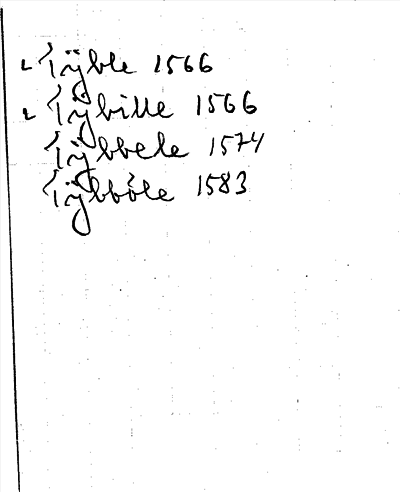 Tÿble 1566
Tÿbille 1566
Tÿbbele 1574
Tÿbböle 1583